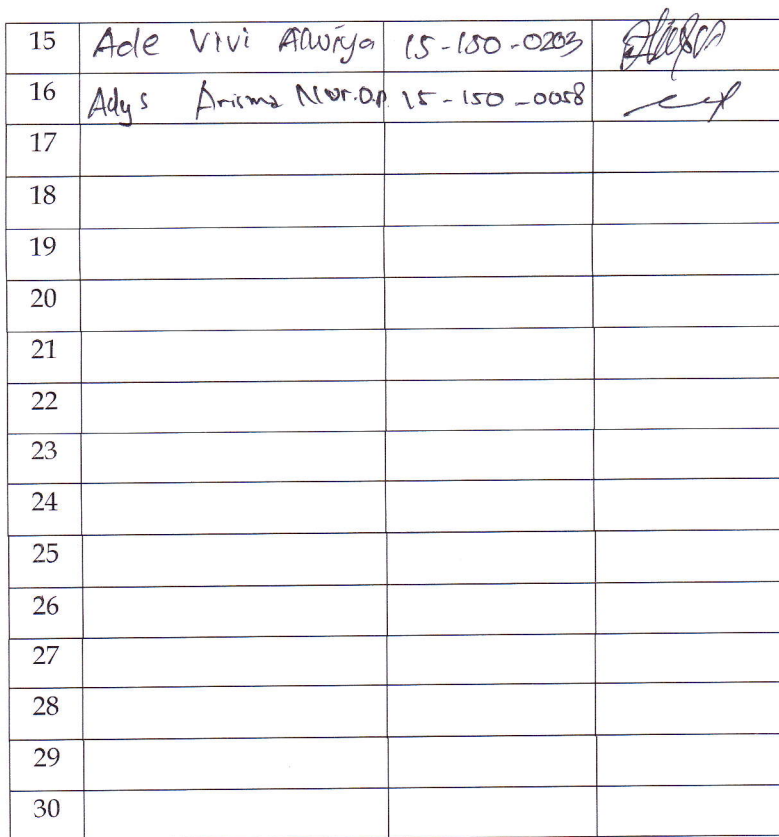 15 Ade Vivi Alwiya 15-150-0203
16 Adys Arisma Nur.D.P 15-150-0058
17
18
19
20
21
22
23
24
25
26
27
28
29
30